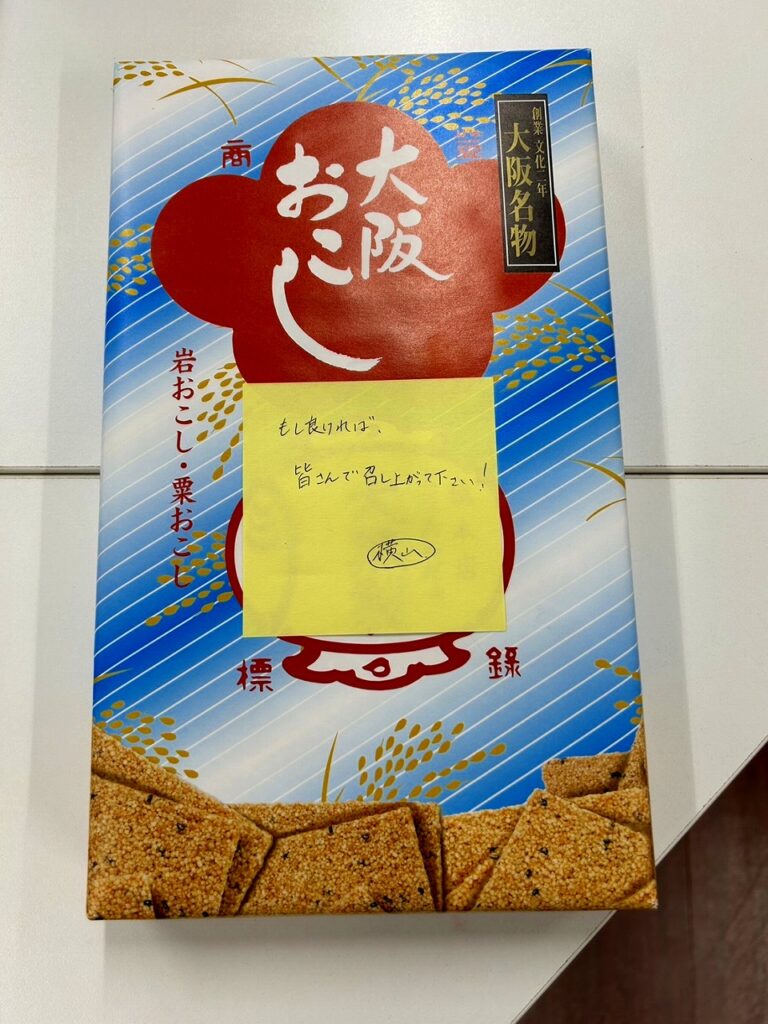 創業 文化二年
大阪名物
大阪
おこし
商
標
錄
岩おこし・粟おこし
もし良ければ、
皆さんで召し上がって下さい!
横山